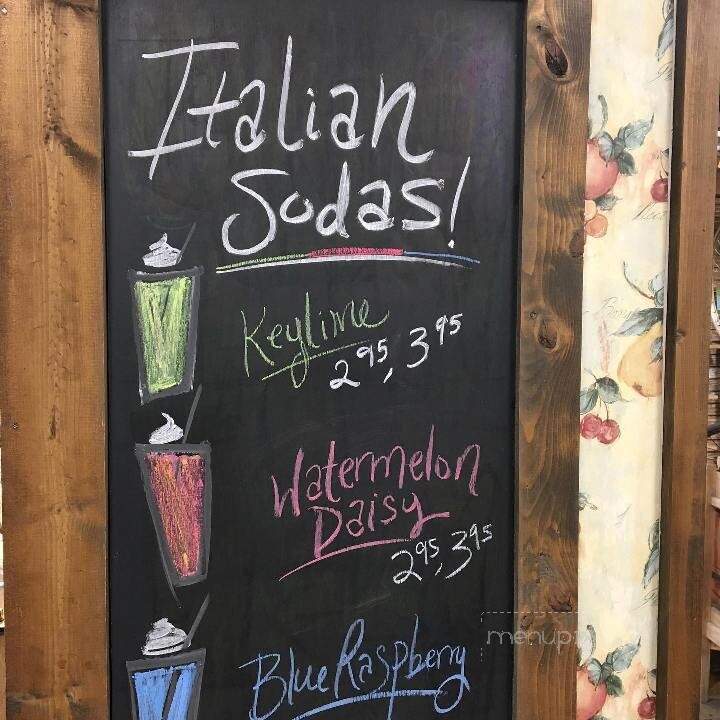 Italian
Sodas!
Keylime
2.95, 3.95
Watermelon
Daisy
2.95, 3.95
Blue Raspberry